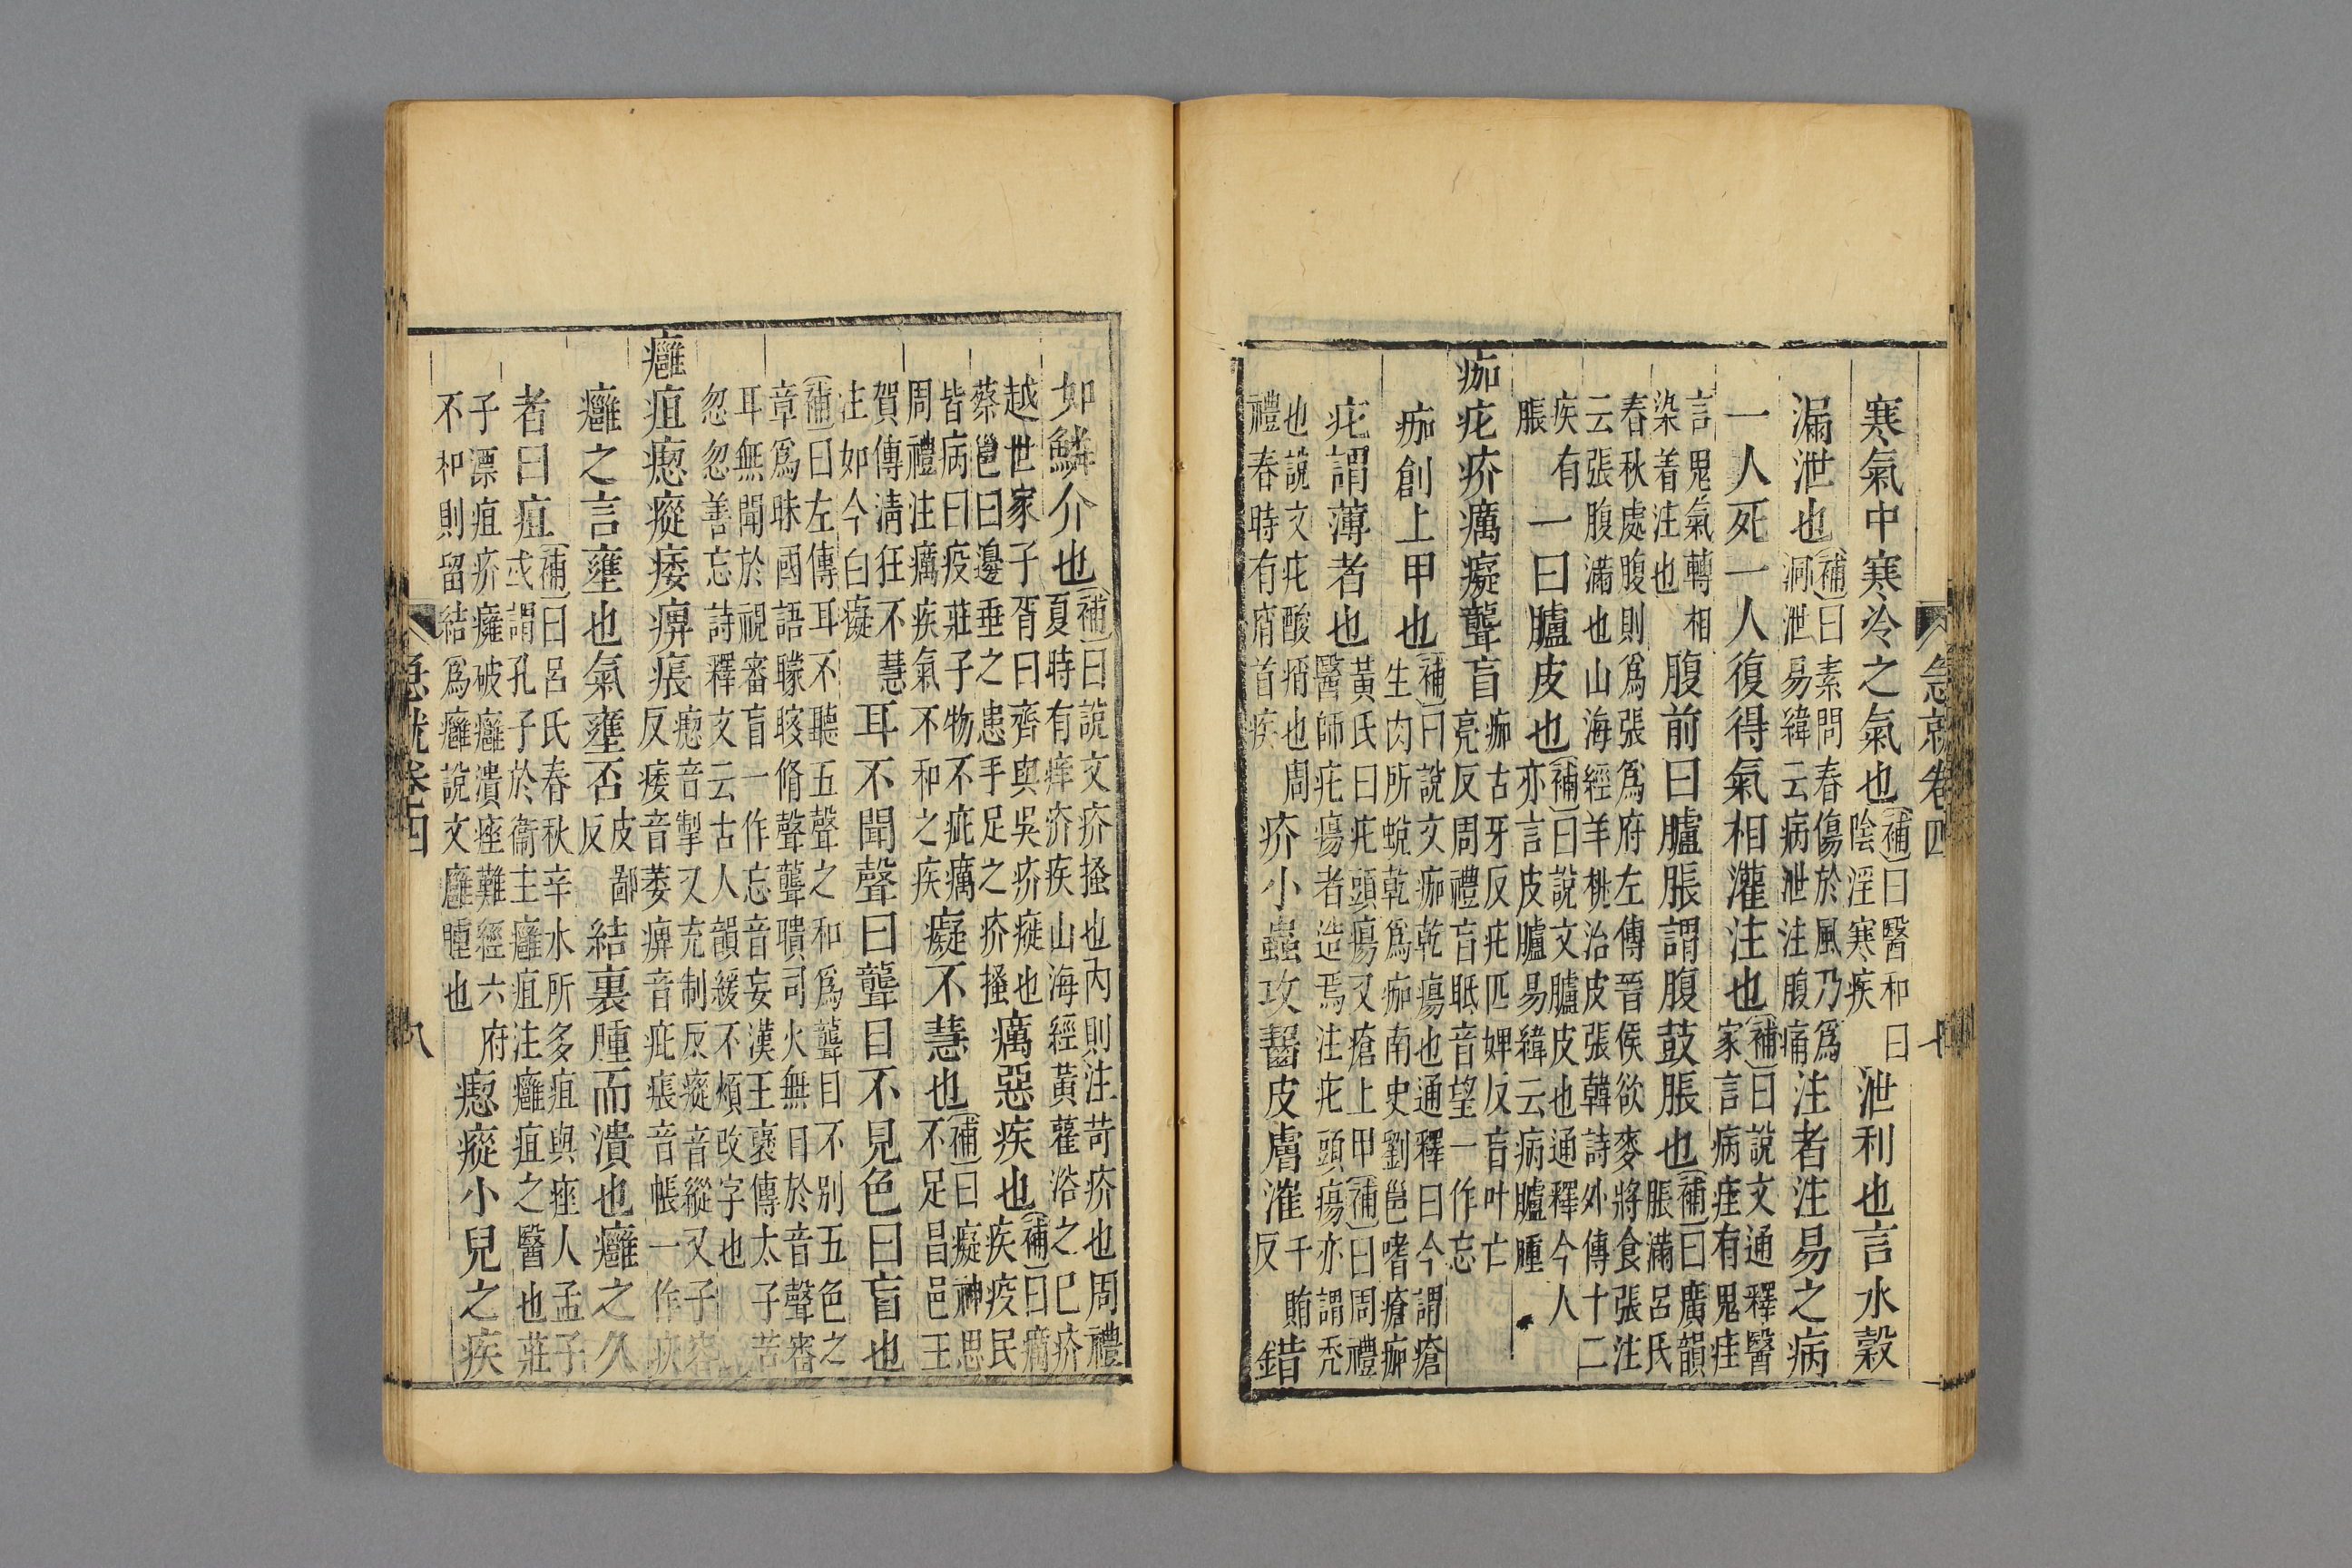 急就卷四
七
寒氣中寒冷之氣也補曰醫和曰陰淫寒疾泄利也言水穀
漏泄也補曰素問春傷於風乃爲洞泄易緯云病泄注腹痛注者注易之病
一人死一人復得氣相灌注也補曰說文通釋醫家言病疰有鬼疰
言鬼氣轉相染着注也腹前曰臚脹謂腹鼓脹也補曰廣韻脹滿呂氏
春秋處腹則爲張爲府左傳晉侯欲麥將食張注云張腹滿也山海經羊桃治皮張韓詩外傳十二
疾有脹一曰臚皮也補曰說文臚皮也通釋今人亦言皮臚易緯云病臚腫
痂疕疥癘癡聾盲痂古牙反疕匹婢反盲叶亡亮反周禮盲眂音望一作忘
痂創上甲也補曰說文痂乾瘍也通釋曰今謂瘡生肉所蛻乾爲痂南史劉邕嗜瘡痂
疕謂薄者也黃氏曰疕頭瘍又瘡上甲補曰周禮醫師疕瘍者造焉注疕頭瘍亦謂禿
也說文疕酸痟也周禮春時有痟首疾疥小蟲攻齧皮膚漼千賄反錯
如鱗介也補曰說文疥搔也內則注苛疥也周禮夏時有痒疥疾山海經黃雚浴之已疥
越世家子胥曰齊與吳疥㿋也蔡邕曰邊垂之患手足之疥搔癘惡疾也補曰癘疾疫民
皆病曰疫莊子物不疵癘周禮注癘疾氣不和之疾癡不慧也補曰癡神思不足昌邑王
賀傳淸狂不慧注如今白癡耳不聞聲曰聾目不見色曰盲也
補曰左傳耳不聽五聲之和爲聾目不別五色之章爲昧國語矇瞍脩聲聾聵司火無目於音聲審
耳無聞於視審盲一作忘音妄漢王襃傳太子苦忽忽善忘詩釋文云古人韻緩不煩改字也
癰疽瘛瘲痿痹痮瘛音掣又充制反瘲音縱又子容反痿音萎痹音疵痮音帳一作疢
癰之言壅也氣壅否皮鄙反結裏腫而潰也癰之久
者曰疽補曰呂氏春秋辛水所多疽與痤人孟子或謂孔子於衞主癰疽注癰疽之醫也莊
子漂疽疥癕破癰潰痤難經六府不和則留結爲癰說文癰腫也瘛瘲小兒之疾
急就卷四
八